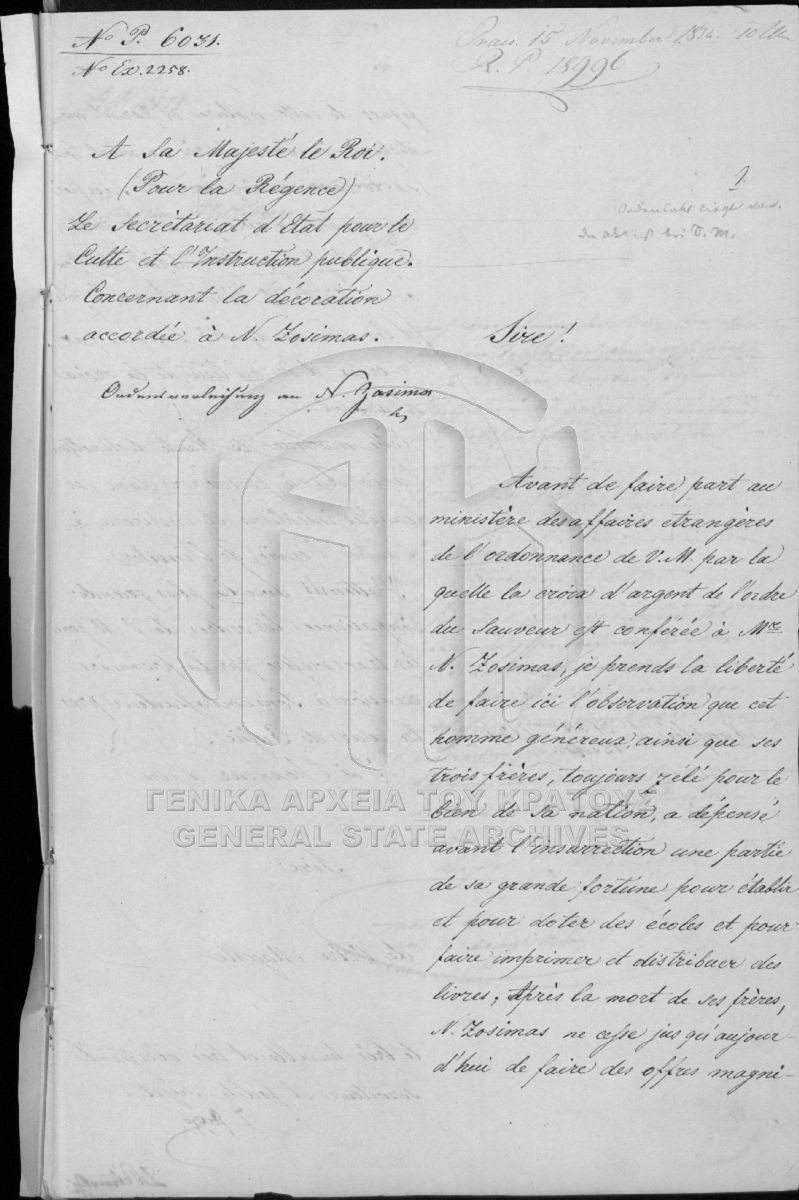 No P. 6031.
No Ex. 2258.
15 November 1834.
R. P 18996
A Sa Majesté le Roi.
(Pour la Régence)
Le Secrètariat d'Etat pour le
Culte et l'Instruction publique.
Concernant la décoration
accordée à N. Zosimas.
Ordensverleihung an N. Zosimas
1.
Sire!
Avant de faire part au
ministère des affaires etrangères
de l'ordonnance de V. M. par la
quelle la croix d'argent de l'ordre
du Sauveur est conférée à Mr
N. Zosimas, je prends la liberté
de faire ici l'observation que cet
homme généreux, ainsi que ses
trois frères, toujours zélé pour le
bien de sa nation, a dépensé
avant l'insurrection une partie
de sa grande fortune pour établir
et pour doter des écoles et pour
faire imprimer et distribuer des
livres; Après la mort de ses frères,
N. Zosimas ne cesse jusqu'aujour-
d'hui de faire des offres magni-
ΓΕΝΙΚΑ ΑΡΧΕΙΑ ΤΟΥ ΚΡΑΤΟΥΣ
GENERAL STATE ARCHIVES